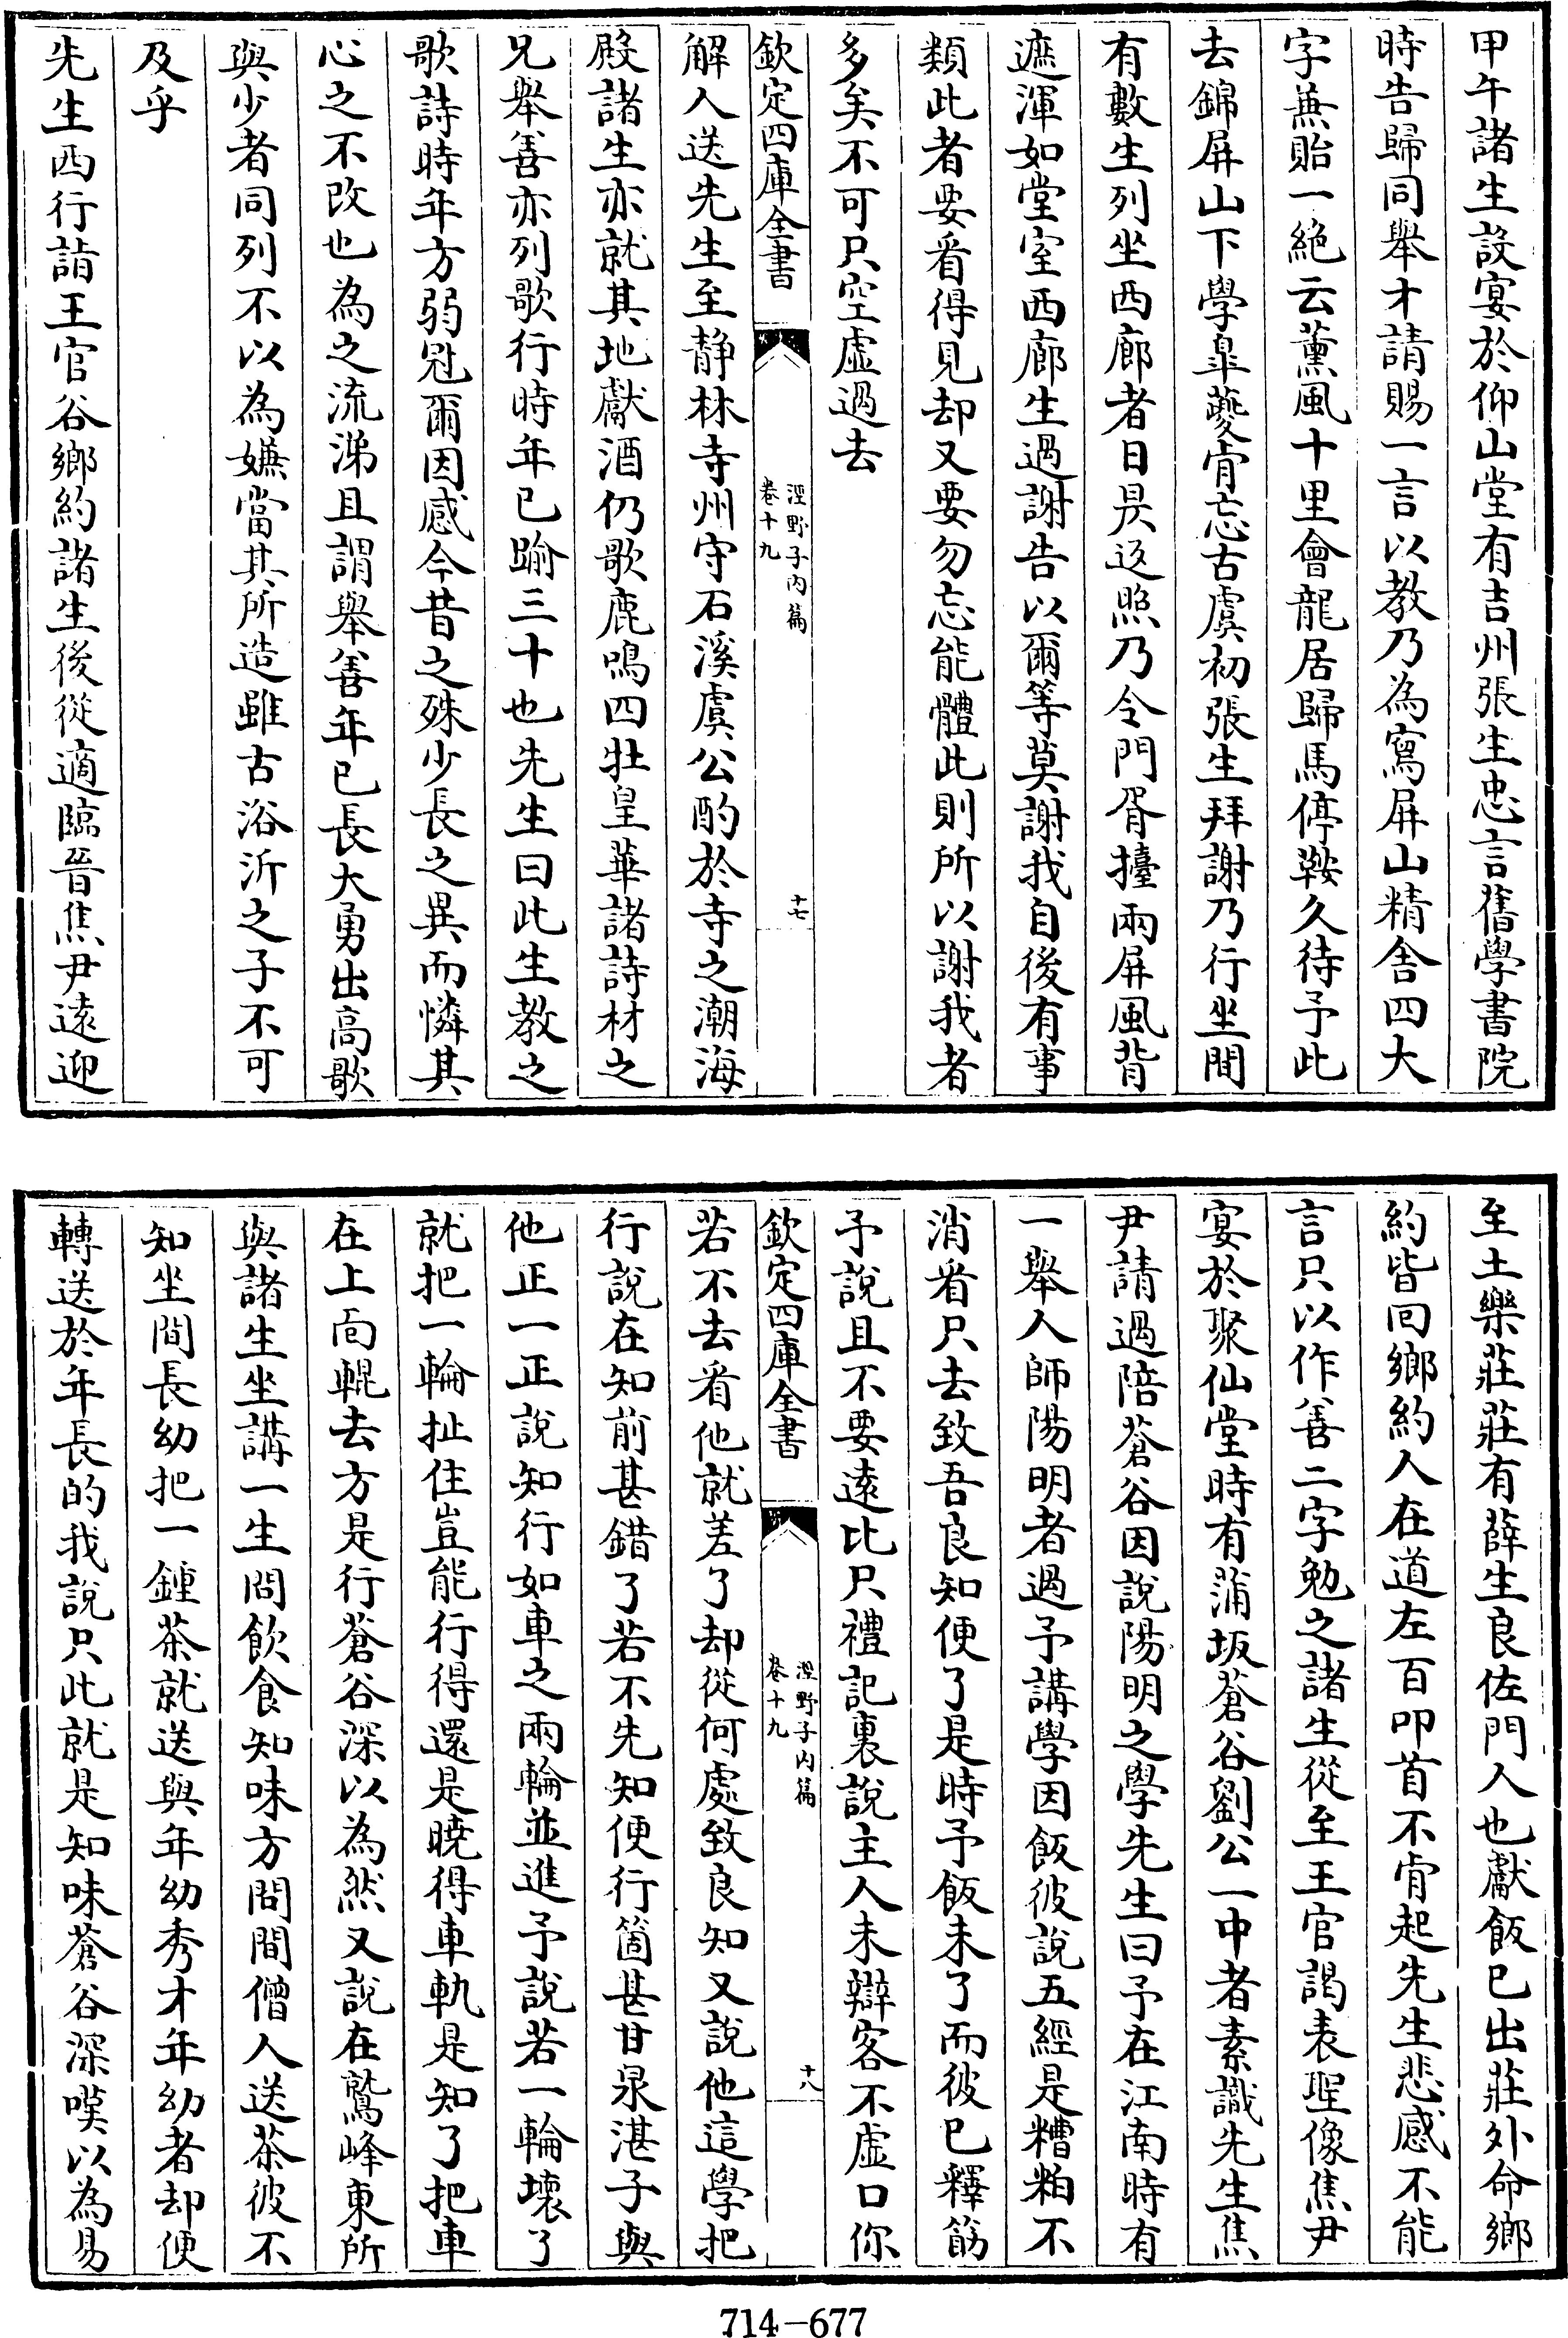 甲午諸生設宴於仰山堂有吉州張生忠言舊學書院
時告歸同舉才請賜一言以教乃為寫屏山精舍四大
字蕪貽一絕云薰風十里會龍居歸馬停鞍久待予此
去錦屏山下學臯䕫肯忘古虞初張生拜謝乃行坐間
有數生列坐西廊者日昃返照乃令門胥擡兩屏風背
遮渾如堂室西廊生過謝告以爾等莫謝我自後有事
類此者要看得見却又要勿忘能體此則所以謝我者
多矣不可只空虛過去
欽定四庫全書
涇野子內篇
卷十九
十七
解人送先生至静林寺州守石溪虞公酌於寺之潮海
殿諸生亦就其地獻酒仍歌鹿鳴四牡皇華諸詩材之
兄舉善亦列歌行時年已踰三十也先生曰此生教之
歌詩時年方弱冠爾因感今昔之殊少長之異而憐其
心之不改也為之流涕且謂舉善年已長大勇出高歌
與少者同列不以為嫌當其所造雖古浴沂之子不可
及乎
先生西行詣王官谷鄉約諸生後從適臨晉焦尹遠迎
至土樂莊莊有薛生良佐門人也獻飯已出莊外命鄉
約皆回鄉約人在道左百叩首不肯起先生悲感不能
言只以作善二字勉之諸生從至王官謁表聖像焦尹
宴於聚仙堂時有蒲坂蒼谷劉公一中者素識先生焦
尹請過陪蒼谷因說陽明之學先生曰予在江南時有
一舉人師陽明者過予講學因飯彼說五經是糟粕不
消看只去致吾良知便了是時予飯未了而彼已釋筯
予說且不要遠比只禮記裏說主人未辯客不虛口你
欽定四庫全書
涇野子內篇
卷十九
十八
若不去看他就差了却從何處致良知又說他這學把
行說在知前甚錯了若不先知便行箇甚甘泉湛子與
他正一正說知行如車之兩輪並進予說若一輪壞了
就把一輪扯住豈能行得還是曉得車軌是知了把車
在上面輥去方是行蒼谷深以為然又說在鷲峰東所
與諸生坐講一生問飲食知味方問間僧人送茶彼不
知坐間長幼把一鍾茶就送與年幼秀才年幼者却便
轉送於年長的我說只此就是知味蒼谷深嘆以為易
714-677